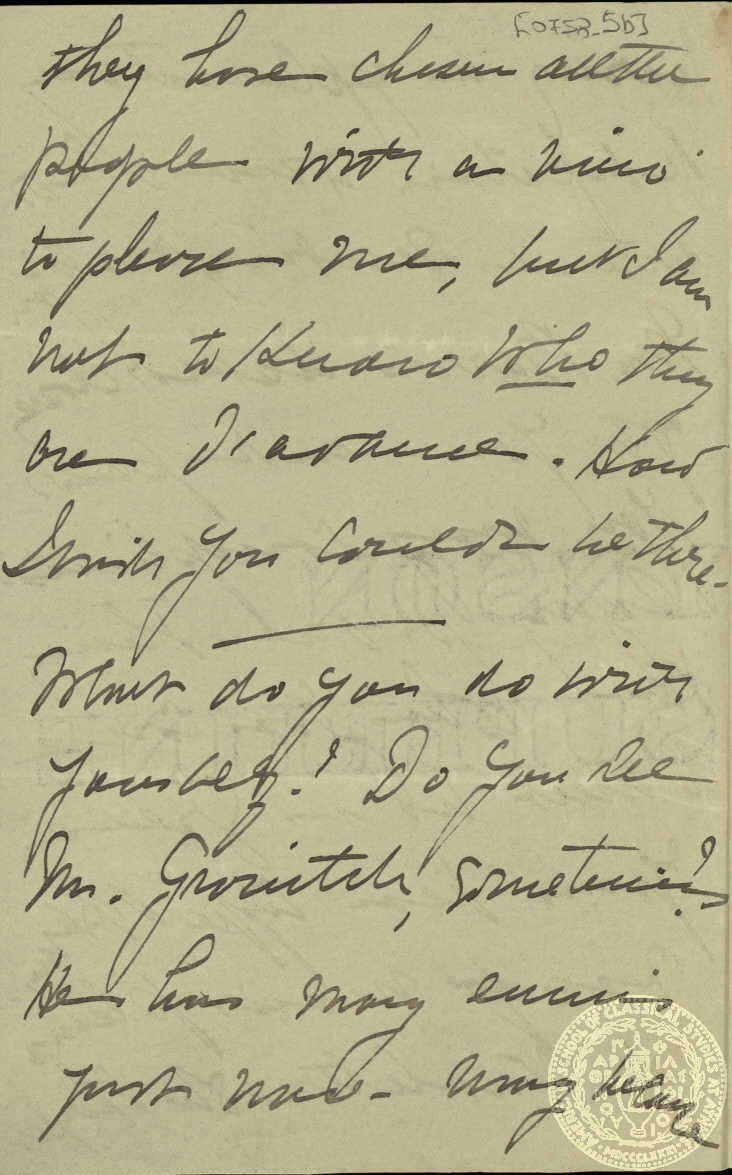 [0753_5b]
they have chosen all the
people with a view
to please me, but I am
not to know who they
are d'avance. How
I wish you could be there.
What do you do with
yourself? Do you see
Mr. sometimes?
He has many ennuis
just now - may be
AMERICAN SCHOOL OF CLASSICAL STUDIES AT ATHENS
MDCCCLXXXI